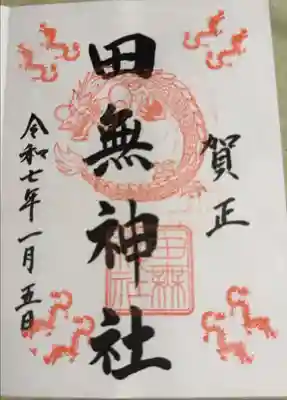 賀正
田無神社
令和七年一月五日
田無神社